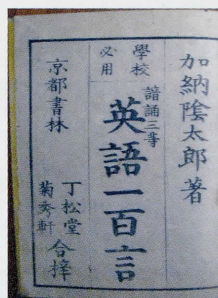 加納陰太郎著
學校
必用
諳誦三等
英語一百言
京都書林
丁松堂
菊秀軒
合梓